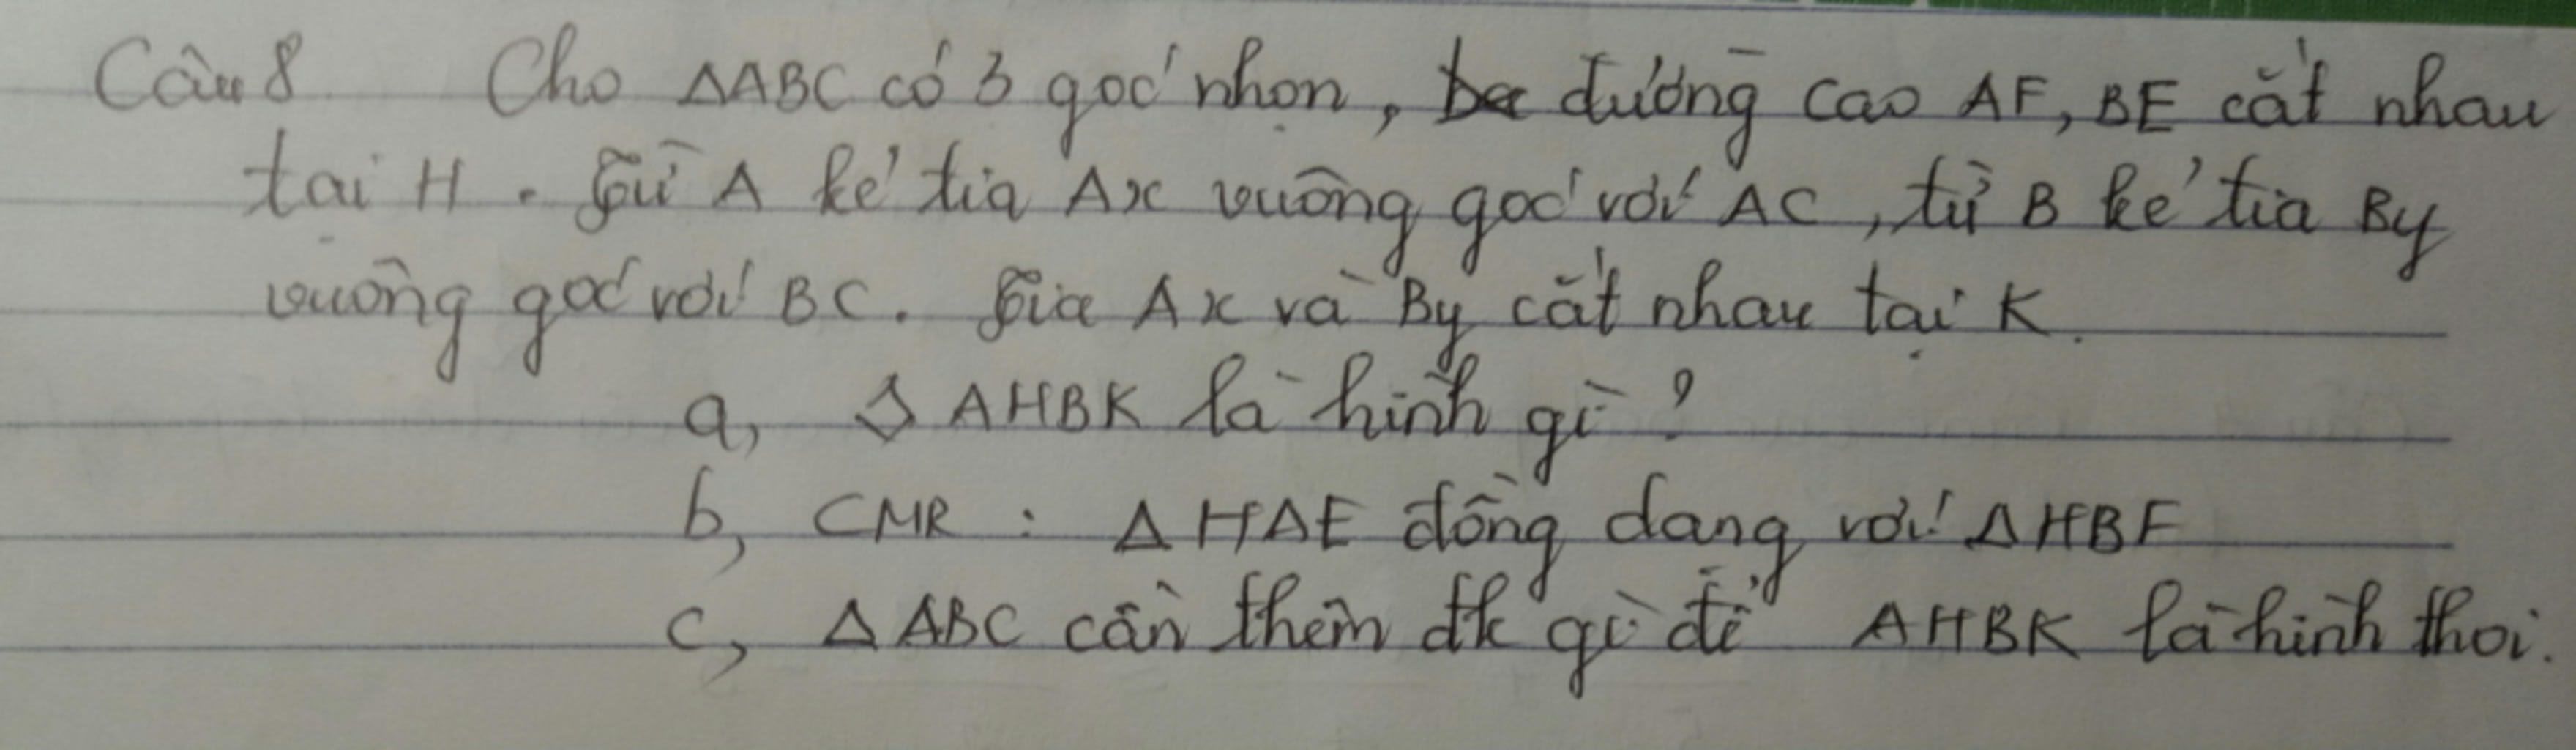 Câu 8 Cho ΔABC có 3 góc nhọn, đường cao AF, BE cắt nhau
tại H. Từ A kẻ tia Ax vuông góc với AC, từ B kẻ tia By
vuông góc với BC. Tia Ax và By cắt nhau tại K.
a, ◇ AHBK là hình gì?
b, CMR : Δ HAE đồng dạng với Δ HBF
c, Δ ABC cần thêm đk gì để AHBK là hình thoi.